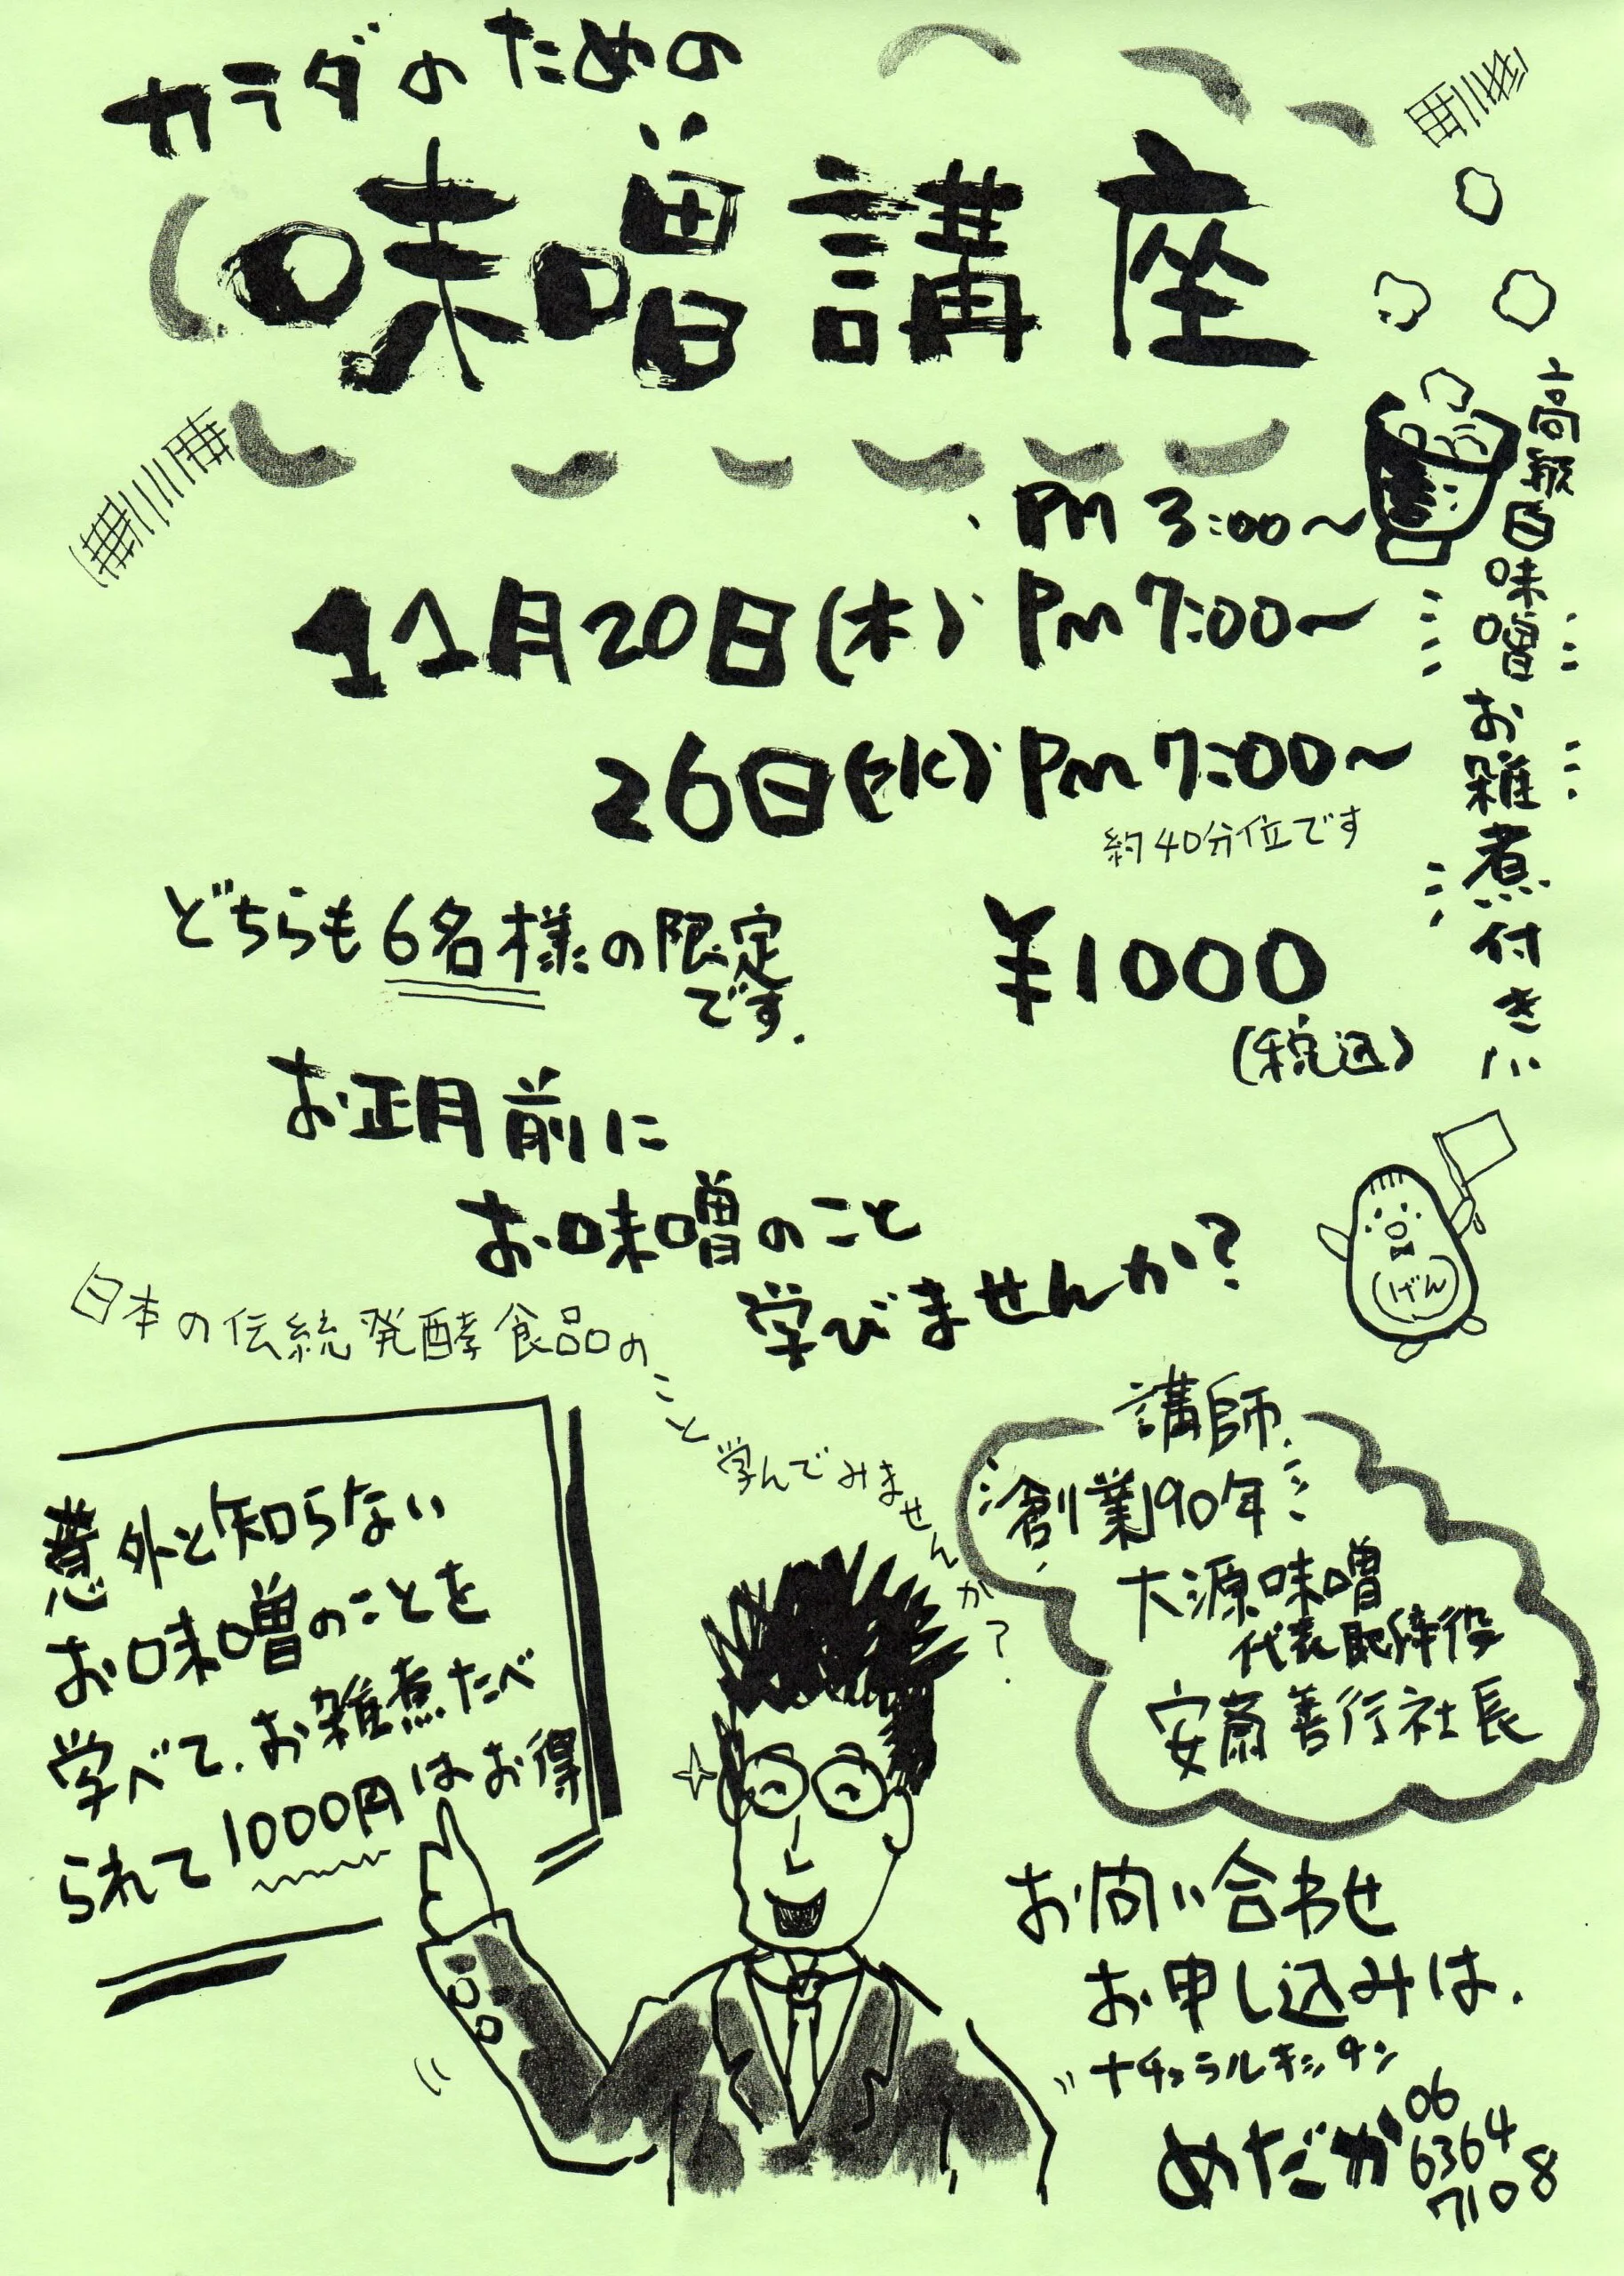 カラダのための
味噌講座
PM 3:00〜
11月20日(木) Pm 7:00〜
26日(水) Pm 7:00〜
約40分位です
高級白味噌お雑煮付き!!
どちらも6名様の限定
です.
¥1000
(税込)
お正月前に
お味噌のこと
学びませんか?
げん
日本の伝統発酵食品のこと学んでみませんか?
意外と知らない
お味噌のことを
学べて.お雑煮たべ
られて1000円はお得
講師
創業190年
大源味噌
代表取締役
安齋善行社長
お問い合わせ
お申し込みは.
ナチュラルキッチン
めだか
06
6364
7108